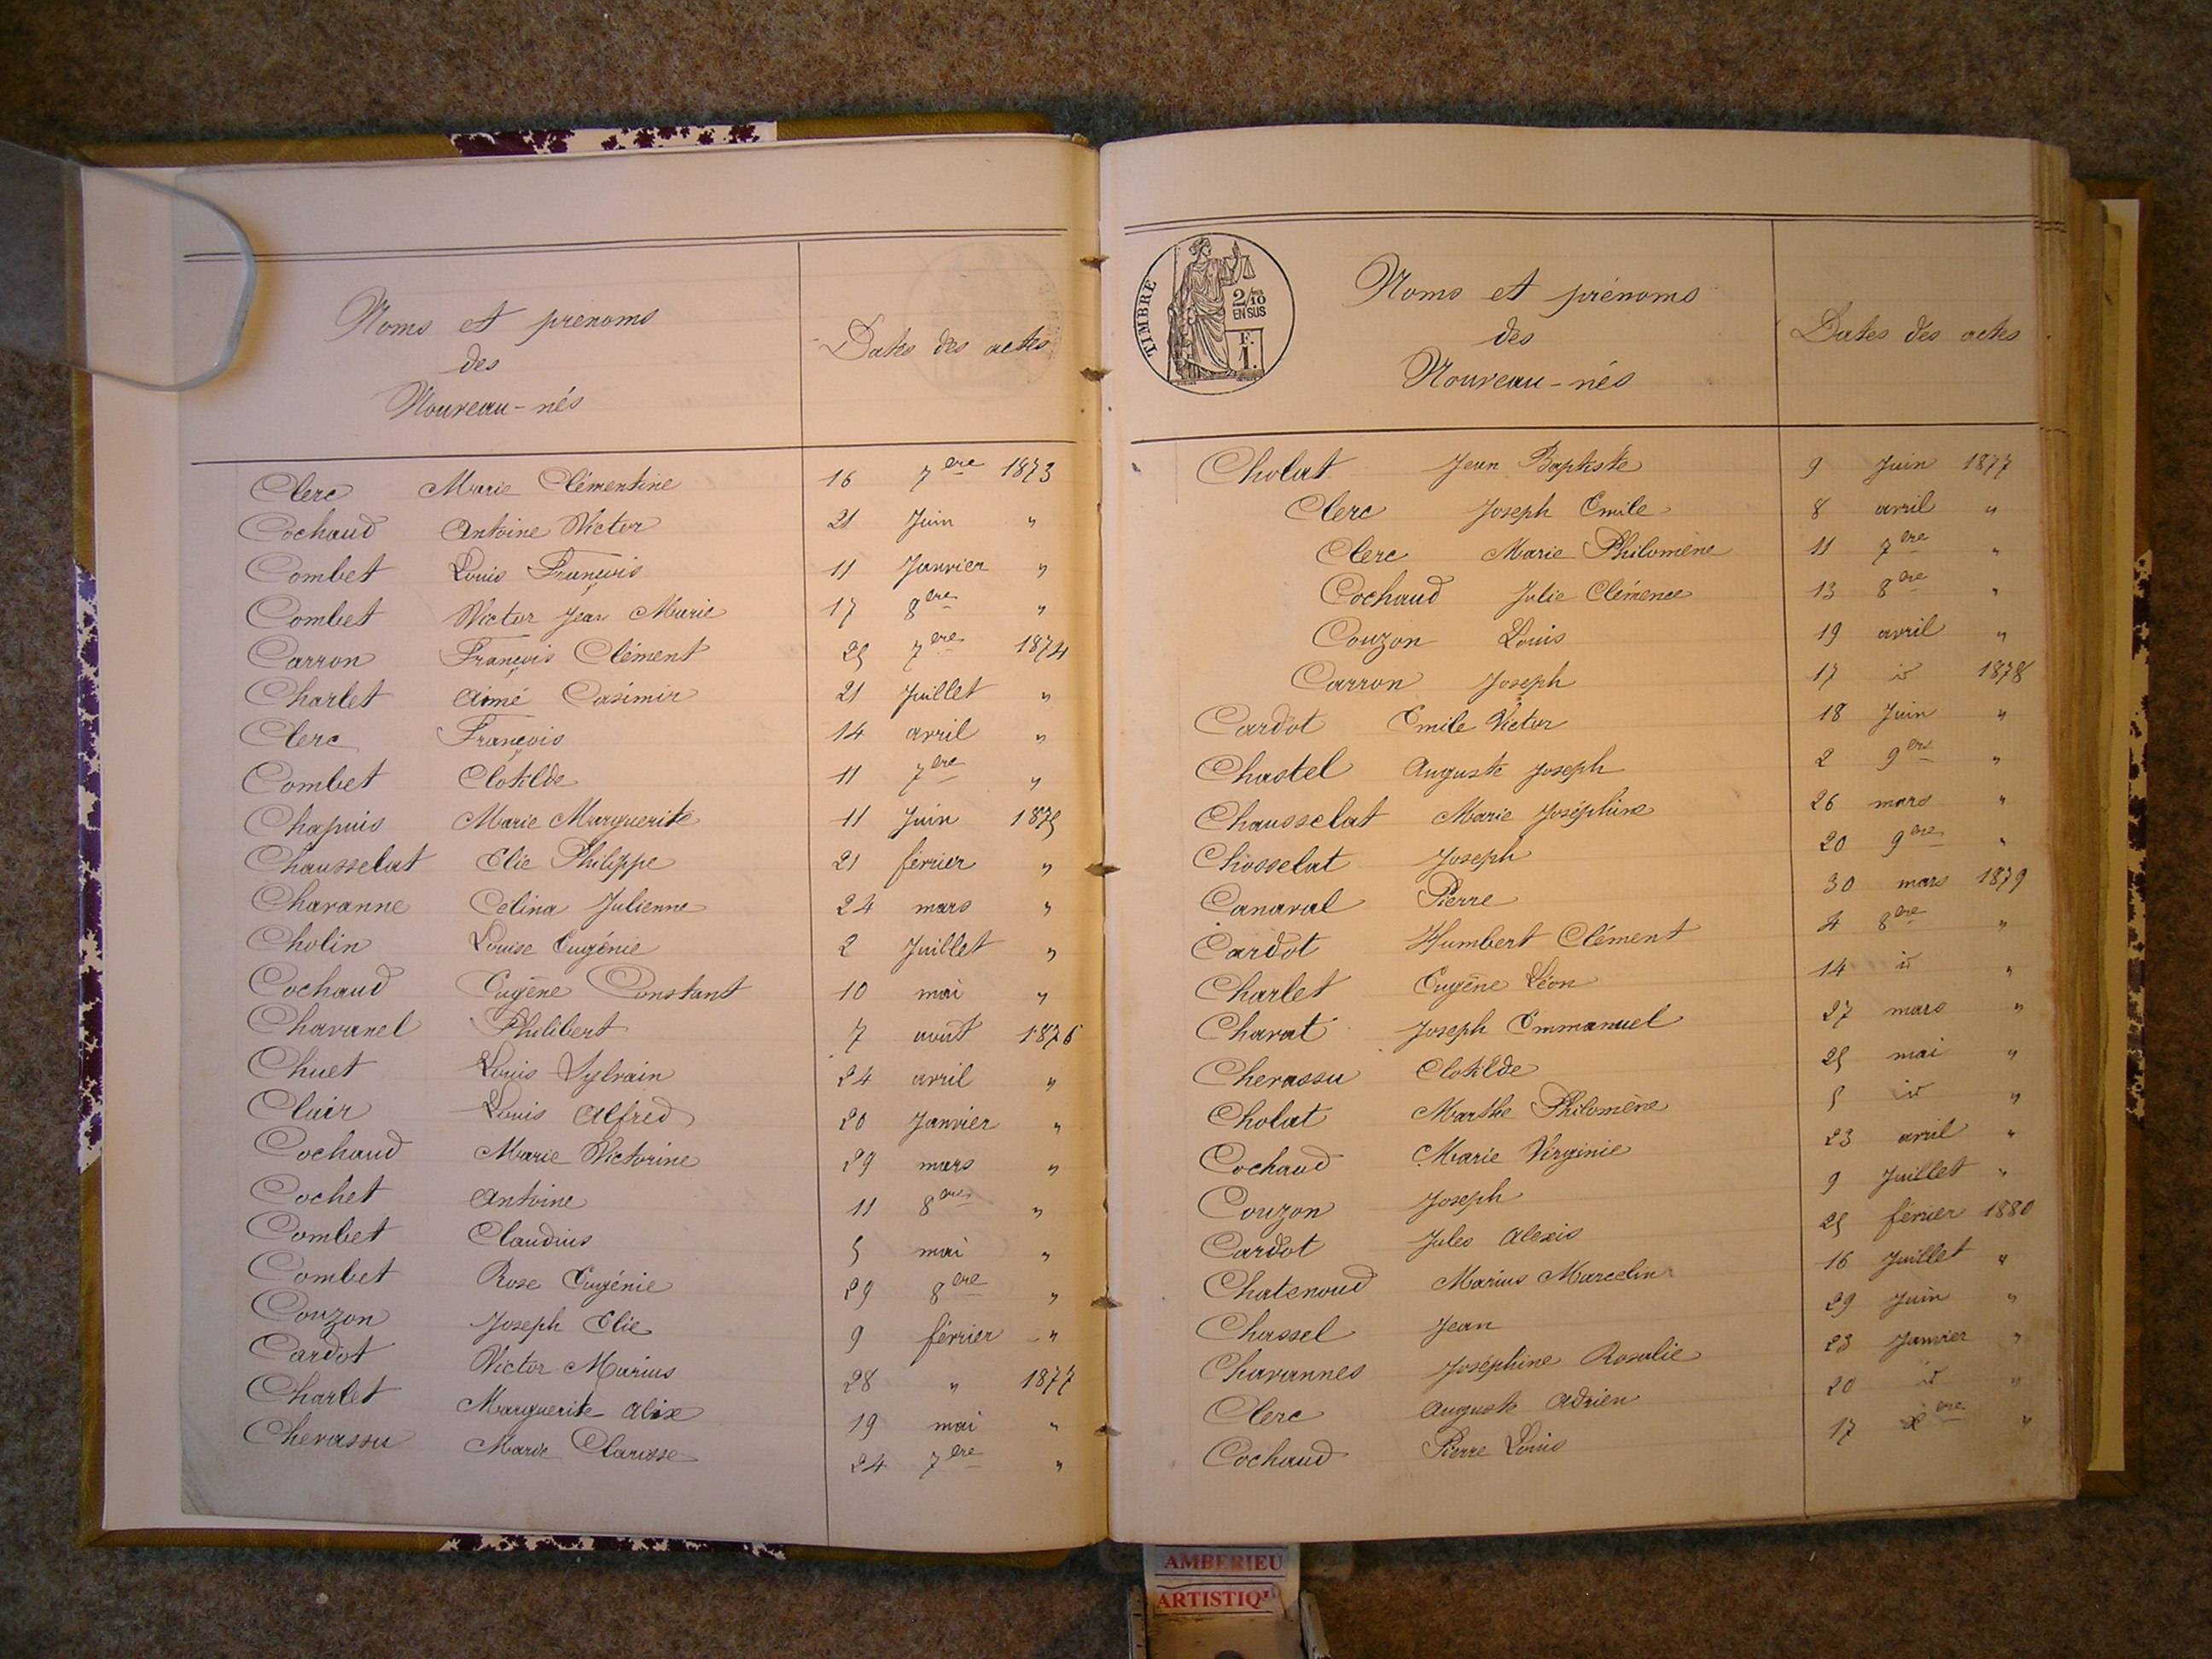 Noms et prenoms
des
Nouveau-nés
Dates des actes
Clerc Marie Clémentine 16 7bre 1873
Cochaud Antoine Victor 21 Juin "
Combet Louis François 11 Janvier "
Combet Victor Jean Marie 17 8bre "
Carron François Clément 25 7bre 1874
Charlet Aimé Casimir 21 Juillet "
Clerc François 14 avril "
Combet Clotilde 11 7bre "
Chapuis Marie Marguerite 11 Juin 1875
Chausselat Elie Philippe 21 février "
Chavanne Célina Julienne 24 mars "
Cholin Louise Eugénie 2 Juillet "
Cochaud Eugène Constant 10 mai "
Chavanel Philibert 7 août 1876
Chuet Louis Sylvain 24 avril "
Clair Louis Alfred 20 Janvier "
Cochaud Marie Victorine 29 mars "
Cochet Antoine 11 8bre "
Combet Claudius 5 mai "
Combet Rose Eugénie 29 8bre "
Couzon Joseph Elie 9 février "
Cardot Victor Marius 28 " 1877
Charlet Marguerite Alix 19 mai "
Chevassu Marie Clarisse 24 7bre "
TIMBRE
2/10
EN SUS
F.
1.
Noms et prénoms
des
Nouveau-nés
Dates des actes
Cholat Jean Baptiste 9 Juin 1877
Clerc Joseph Emile 8 avril "
Clerc Marie Philomène 11 7bre "
Cochaud Julie Clémence 13 8bre "
Couzon Louis 19 avril "
Carron Joseph 17 id 1878
Cardot Emile Victor 18 Juin "
Chastel Auguste Joseph 2 9bre "
Chausselat Marie Joséphine 26 mars "
Chosselat Joseph 20 9bre "
Canaval Pierre 30 mars 1879
Cardot Humbert Clément 4 8bre "
Charlet Eugène Léon 14 id "
Charat Joseph Emmanuel 27 mars "
Chevassu Clotilde 25 mai "
Cholat Marthe Philomène 5 id "
Cochaud Marie Virginie 23 avril "
Couzon Joseph 9 Juillet "
Cardot Jules Alexis 25 février 1880
Chatenoud Marius Marcelin 16 Juillet "
Chassel Jean 29 Juin "
Chavannes Joséphine Rosalie 23 Janvier "
Clerc Auguste Adrien 20 id "
Cochaud Pierre Louis 17 Xbre "
AMBERIEU
ARTISTIQU